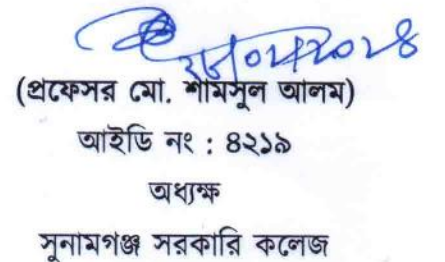 (প্রফেসর মো. শামসুল আলম)
আইডি নং : ৪২১৯
অধ্যক্ষ
সুনামগঞ্জ সরকারি কলেজ